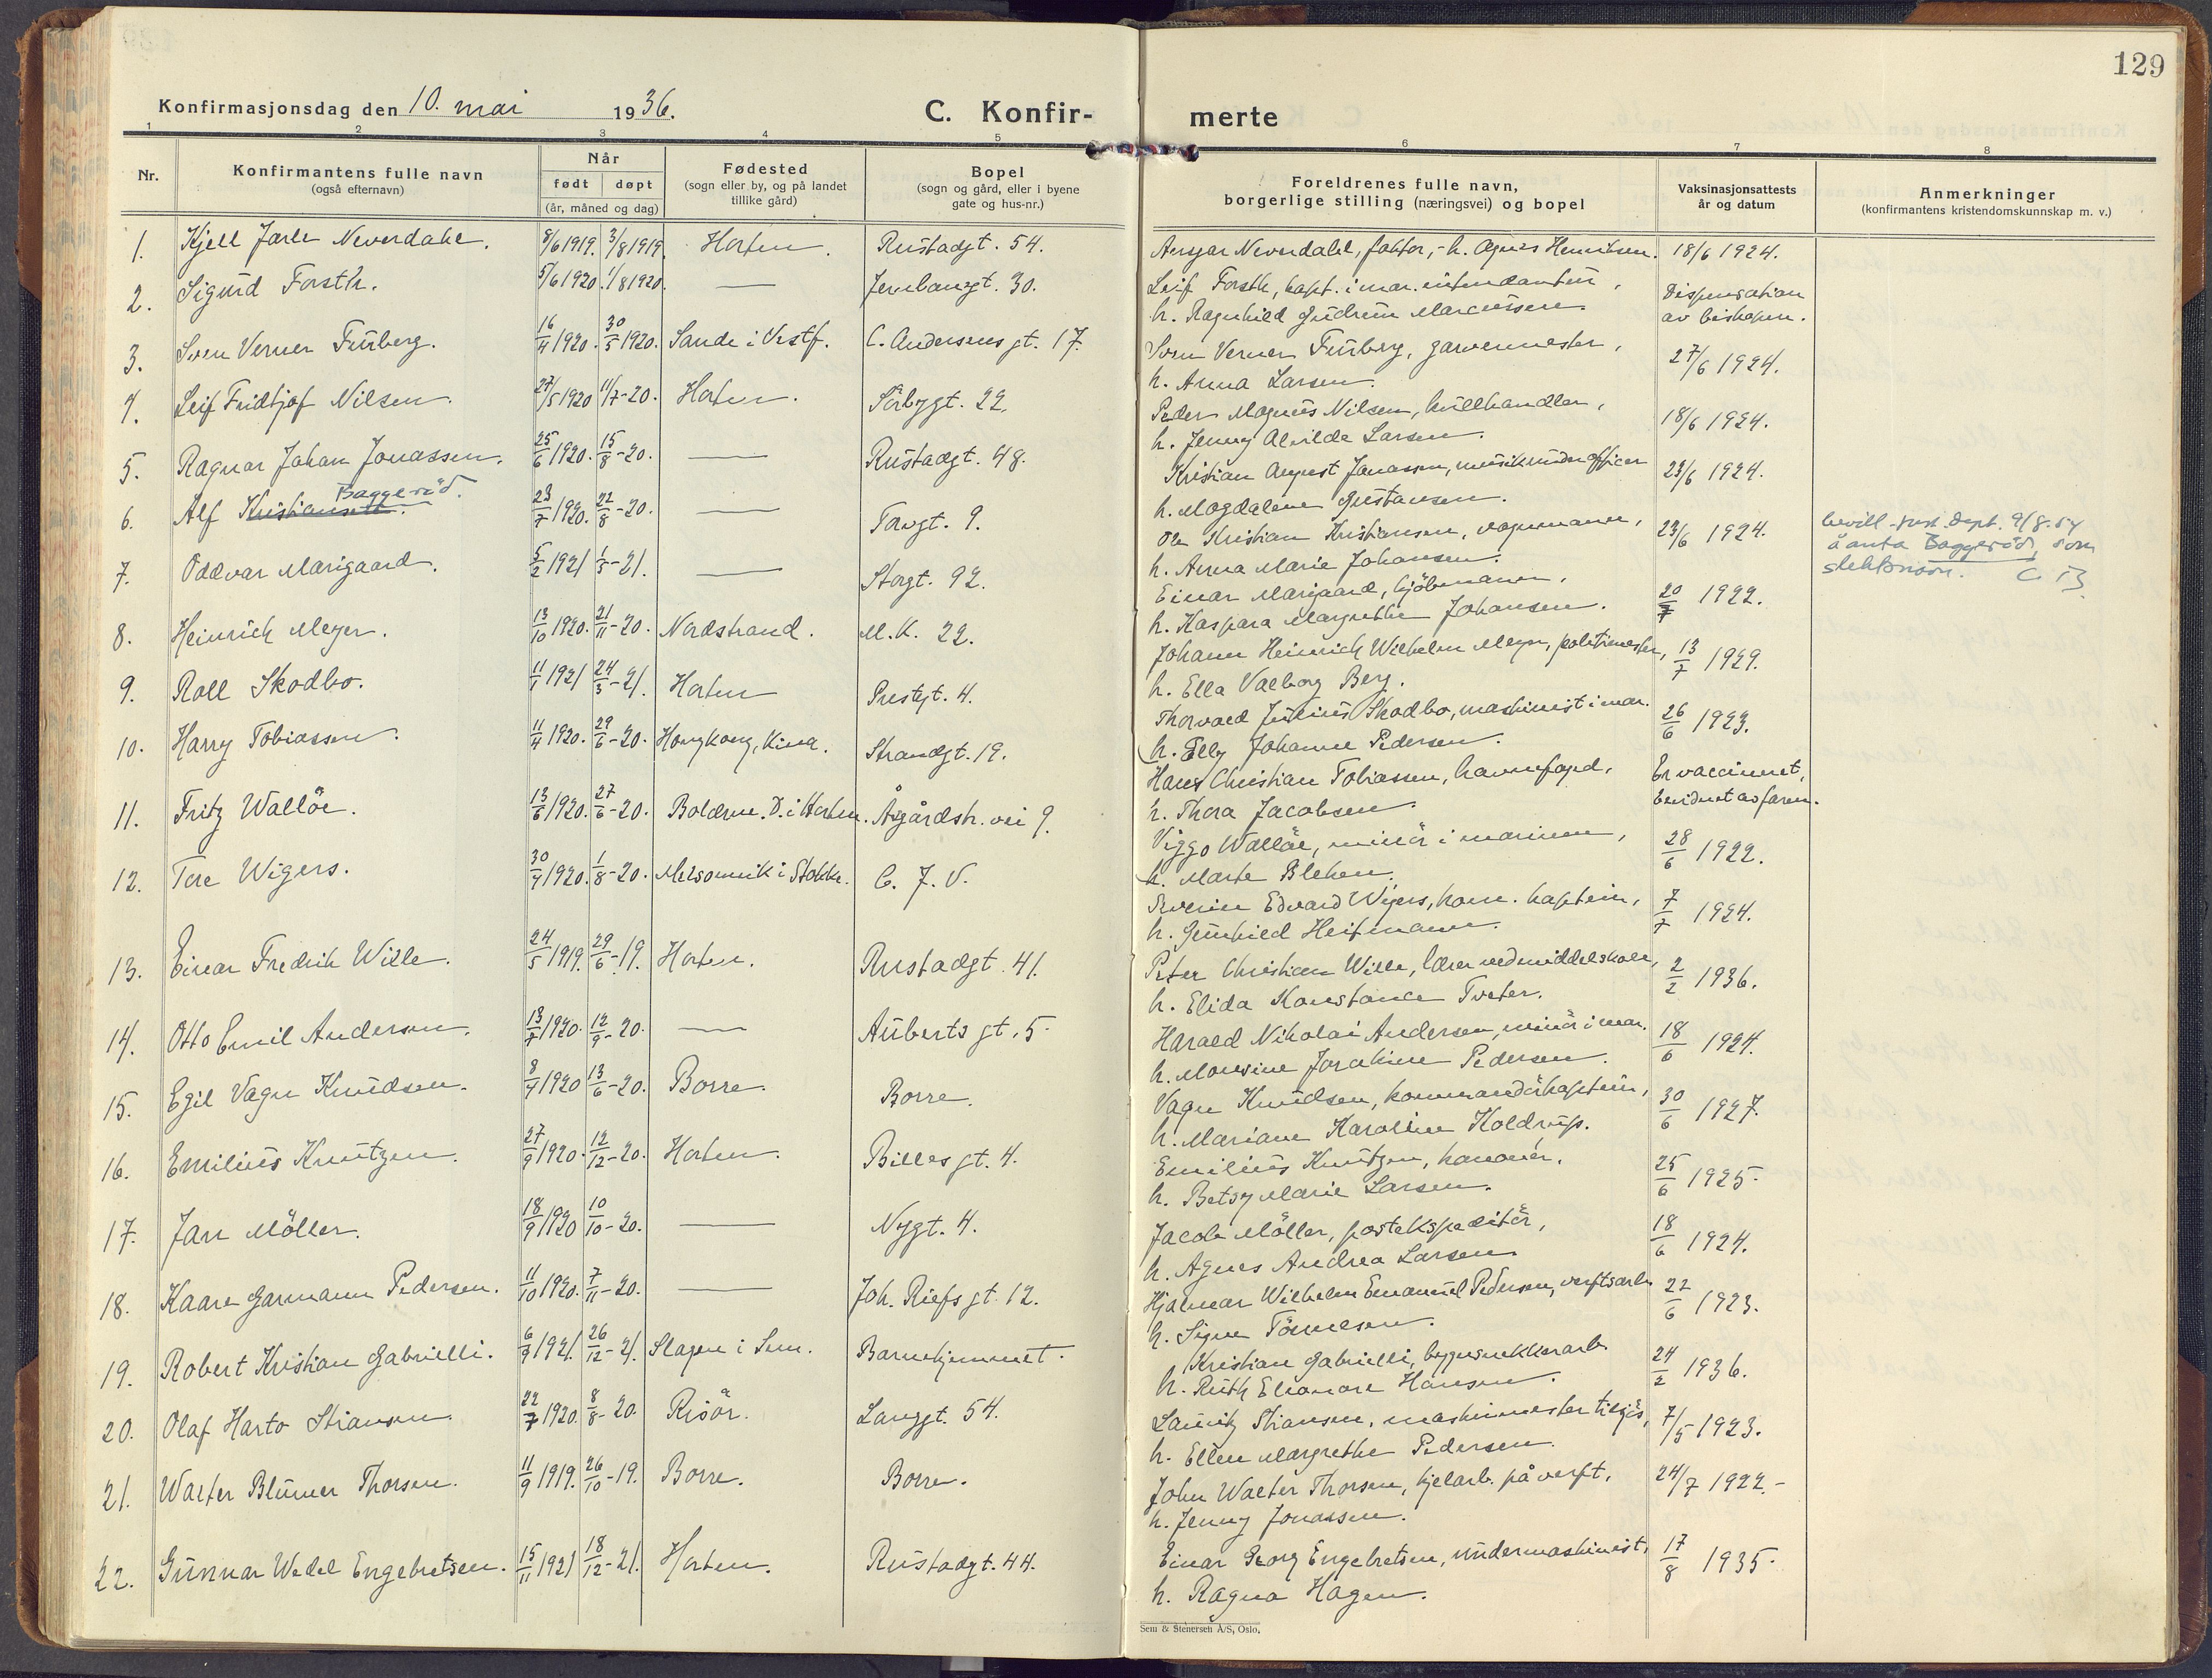 129
Konfirmasjonsdag den 10. mai 1936.
C. Konfir-merte
1 2 3 4 5 6 7 8
Nr.
Konfirmantens fulle navn
(også efternavn)
Når
født døpt
(år, måned og dag)
Fødested
(sogn eller by, og på landet
tillike gård)
Bopel
(sogn og gård, eller i byene
gate og hus-nr.)
Foreldrenes fulle navn,
borgerlige stilling (næringsvei) og bopel
Vaksinasjonsattests
år og datum
Anmerkninger
(konfirmantens kristendomskunnskap m. v.)
1. Kjell Jarle Neverdahl. 8/6 1919. 3/8 1919. Horten. Rustadgt. 54. Ansgar Neverdahl, faktor, - h. Agnes Henriksen. 18/6 1924.
2. Sigurd Forsth. 5/6 1920. 1/8 1920. — Jernbanegt. 30. Leif Forsth, kapt. i mar. intendantur, Dispensation
h. Ragnhild Gudrun Marcussen. av biskopen.
3. Sven Verner Furberg. 16/4 1920. 30/5 1920. Sande i Vestf. C. Andersens gt. 17. Sven Verner Furberg, garvermester, 27/6 1924.
h. Anna Larsen.
4. Leif Fridtjof Nilsen. 27/5 1920 11/7-20. Horten. Sörbygt. 22. Peder Magnus Nilsen, kullhandler, 18/6 1924.
h. Jenny Alvilde Larsen.
5. Ragnar Johan Jonassen. 25/6 1920. 15/8-20. — Rustadgt. 48. Kristian August Jonassen, musikunderofficer 23/6 1924.
h. Magdalene Gustavsen.
Baggeröd.
6. Alf Kristiansen. 23/7 1920. 22/8-20. — Torvgt. 9. Ole Kristian Kristiansen, vognmann, 23/6 1924. bevill. Just. Dept. 9/8-54
h. Anna Marie Johansen. å anta Baggeröd som
slektsnavn. C. B.
7. Oddvar Marigaard. 5/2 1921 1/5-21. — Storgt. 92. Einar Marigaard, kjöbmann, 20/7 1922.
h. Kaspara Margrethe Johansen.
8. Heinrich Meyer. 13/10 1920. 21/11-20. Nordstrand. M.K. 22. Johann Heinrich Wilhelm Meyer, politimester, 13/7 1929.
h. Ella Valborg Berg.
9. Roll Skodbo. 11/1 1921 24/3-21. Horten Prestegt. 4. Thorvald Julius Skodbo, maskinist i mar. 26/6 1923.
h. Elly Johanne Pedersen.
10. Harry Tobiassen. 11/4 1920. 29/6-20. Hongkong, Kina. Strandgt. 19. Hans Christian Tobiassen, havnefoged, Er vaccinert,
h. Thora Jacobsen.
11. Fritz Wallöe. 13/6 1920. 27/6-20. Bolærne. D. i Horten. Åsgårdstr. vei 9. Viggo Wallöe, minör i marinen, 28/6 1922.
h. Marte Bleken.
12. Tore Wigers. 30/4 1920. 1/8-20. Melsomvik i Stokke. C. J. V. Severin Edvard Wigers, kom. kaptein, 7/7 1924.
h. Gunhild Heitmann.
13. Einar Fredrik Wille. 24/5 1919. 29/6-19. Horten. Rustadgt. 41. Peter Christian Wille, lærer ved middelskole, 2/2 1936.
h. Elida Konstance Tveter.
14. Otto Emil Andersen. 13/7 1920. 12/9-20. — Auberts gt. 5. Harald Nikolai Andersen, minör i mar. 18/6 1924.
h. Monsine Jorakine Pedersen.
15. Egil Vagn Knudsen. 8/4 1920 13/6-20. Borre. Borre. Vagn Knudsen, kommandörkaptein, 30/6 1927.
h. Mariane Karoline Koldrup.
16. Emilius Knutzen. 27/9 1920. 12/12-20. Horten. Billes gt. 4. Emilius Knutzen, kanonér, 25/6 1925.
h. Betsy Marie Larsen.
17. Jan Möller. 18/9 1920 10/10-20. — Nygt. 4. Jacob Möller, postekspeditör, 18/6 1924.
h. Agnes Andrea Larsen.
18. Kaare Garmann Pedersen. 11/10 1920. 7/11-20. — Joh. Riefs gt. 12. Hjalmar Wilhelm Emanuel Pedersen, verftsarb. 22/6 1923.
h. Signe Tönnesen.
19. Robert Kristian Gabrielli. 6/9 1921. 26/12-21. Slagen i Sem. Barnehjemmet. Kristian Gabrielli, bygnsnekkerarb. 24/2 1936.
h. Ruth Eleonore Hansen.
20. Olaf Harto Stiansen. 22/7 1920. 8/8-20. Risör. Langgt. 54. Lauritz Stiansen, maskinmester tilsjös, 7/5 1923.
h. Ellen Margrethe Pedersen.
21. Walter Blumer Thorsen. 11/9 1919. 26/10-19. Borre. Borre. John Walter Thorsen, kjelarb. på verft, 24/7 1922.-
h. Jenny Jonassen.
22. Gunnar Wedel Engebretsen. 15/11 1921 18/12-21. Horten. Rustadgt. 44. Einar Georg Engebretsen, undermaskinist, 17/8 1935.
h. Ragna Hagen.
Sem & Stenersen A/S, Oslo.